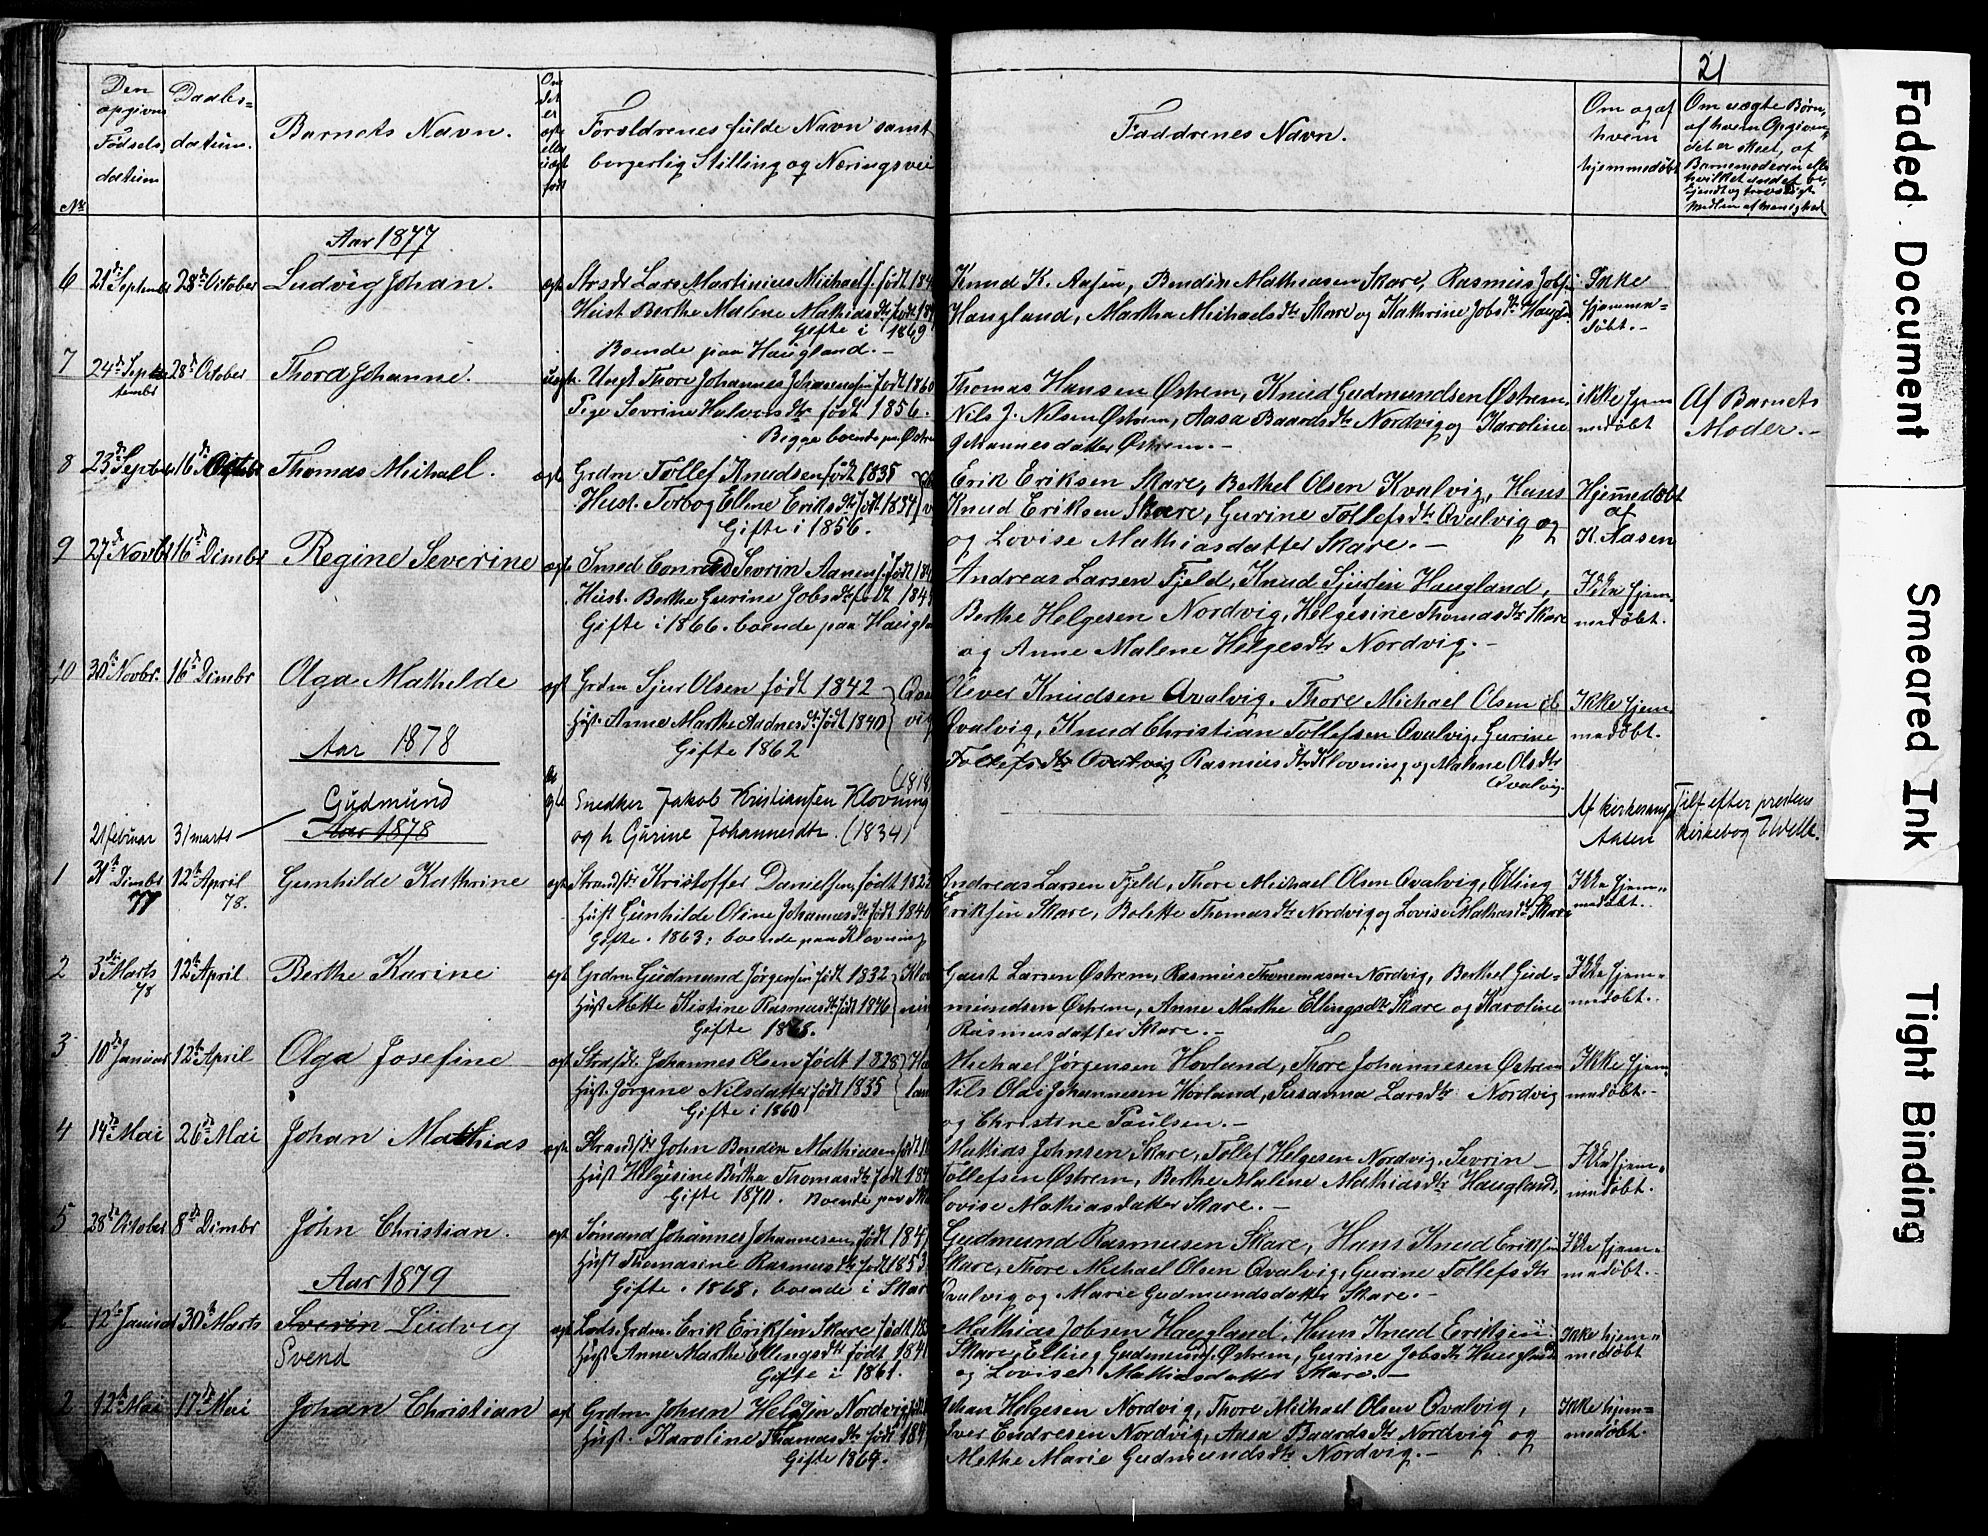 21
Den
opgivne
Fødsels
datum
No
Daabs=
datum.
Barnets Navn.
Om
det
er
ægte
eller
uægt
født
Forældrenes fulde Navn samt
borgerlig Stilling og Næringsvei
Faddrenes Navn.
Om og af
hvem
hjemmedøbt
Om uægte Børn,
af hvem Opgiven
det er skeet, af
Barnemoderen eller
Aar 1877
6 21de Septembr 28de October Ludvig Johan. ægte Strsdr Lars Martinius Michaels. født 184
Hust. Berthe Malene Mathiasdtr født 18
Gifte i 1869
Boende paa Haugland.-
Knud K. Aasen, Bendix Mathiasen Skare, Rasmus Jobs.
Haugland, Martha Michaelsdtr Skare og Kathrine Jobsdtr Haugl.
Ikke
hjemme=
døbt.-
7 24de Sept
tembr 28de October Thora Johanne. uægte. Ungk. Thore Johannes Johannesen født 1860
Pige Sevrine Halvorsdtr født 1856.
Begge boende paa Østre
Thomas Hansen Østrem, Knud Gudmundsen Østrem,
Nils J. Nilsen Østrem, Aasa Baardsdtr Nordvig og Karoline
Johannesdatter Østrem.-
ikke hjem
medøbt
Af Barnets
Moder.-
8 23de Septbr 16de Thomas Michael. ægte Grdm Tollef Knudsen født 1835
Hust. Torbog Elline Eriksdtr født 1834
Gifte i 1856.
Erik Eriksen Skare, Berthel Olsen Kvalvig, Hans
Knud Eriksen Skare, Gurine Tollefsdtr Qvalvig og
og Lovise Mathiasdatter Skare.-
Hjemmedøbt
af
K. Aasen
9 27de Novbr 16de Dcmbr Regine Severine ægte Insed Conrad Sevrin Aanens. født 184
Hust. Berthe Gurine Jobsdtr født 184
Gifte i 1866. boende paa Haugla
Andreas Larsen Fjeld, Knud Sjursen Haugland,
Berthe Helgesen Nordvig, Helgesine Thomasdtr Skare
og Anne Malene Helgesdtr Nordvig.-
Ikke hjem=
medøbt.
10 30te Novbr. 16de Dcmbr Olga Mathilde ægt Grdm Sjur Olsen født 1842
Hust. Anne Marthe Andnesdtr født 1840
Gifte 1862
Qva
vig
Olever Knudsen Qvalvig. Thore Michael Olsen
Qvalvig, Knud Christian Tollefsen Qvalvig, Gurine
Tollefsdtr Qvalvig Rasmus dtr Klovning og Malene Olsdtr
Qvalvig.
Ikke hjem=
medøbt.
Aar 1878
Gudmund
Aar 1878
21 februar 31 marts ægte Snedker Jakob Kristiansen Klovning (1818
og h Gurine Johannesdtr. (1834)
Af kirkesang
Aasen
Tilf efter prestens
kirkebog
1 31te Dcmbr
77 12te April
78. Gunhilde Kathrine ægt Strandsdr Kristoffer Danielsen, født 182
Hust Gunhilde Oline Johannesdtr født 1840
Gifte. 1863; boende paa Klovning
Andreas Larsen Fjeld, Thore Michael Olsen Qvalvig, Elling
Eriksen Skare, Bolette Thomasdtr Nordvig og Lovise Mathiasdtr Skare
Ikke hjem=
medøbt.
2 3die Marts
78 12te April Berthe Karine ægt Grdm Gudmund Jørgensen født 1832
Hust Mette Kistine Rasmusdtr født 1846
Gifte 1868.
Klov
ning
Gaut Larsen Østrem, Rasmus Thommasen Nordvig, Berthel Gud=
mundsen Østrem, Anne Marthe Ellingsdtr Skare og Karoline
Rasmusdatter Skare.-
Ikke hjem=
medøbt.
3 10de Januar 12te April Olga Josefine ægt Strsdr. Johannes Olsen født 1828
Hust. Jørgine Nilsdatter født 1835
Gifte i 1860
Michael Jørgensen Hovland, Thore Johannesen Østrem
Nils Olai Johannesen Hovland, Susanna Larsdtr Nordvig
og Christine Paulsen.-
Ikke hjem=
medøbt.-
4 14de Mai 26de Mai Johan Mathias ægte Strandsdr John Bendix Mathiasen født 18
Hust Helgesine Bertha Thomasdtr født 184
Gifte 1870. Boende paa Ska
Mathias Johnsen Skare, Tollef Helgesen Nordvig, Sevrin
Tollefsen Østrem, Berthe Malene Mathiasdtr Haugland,
Lovise Mathiasdatter Skare.-
Ikke hjem=
medøbt.
5 28de October 8de Dcmbr John Christian. ægt Sømand Johannes Johannesen født 184
Hust Thomasine Rasmusdtr født 1853
Gifte i 1868, boende i Skare
Gudmund Rasmusen Skare, Hans Knud Eriksen
Skare, Thore Michael Olsen Qvalvig, Gurine Tollefsdtr
Qvalvig og Marie Gudmundsdatter Skare.-
Ikke hjem=
medøbt.-
Aar 1879
1 12te Januar 30te Marts Sverin Ludvig
Svend ægt Lods. Grdm. Erik Eriksen Skare født 183
Hust. Anne Marthe Ellingsdtr født 184
Gifte i 1861.
Mathias Jobsen Haugland, Hans Knud Eriksen
Skare, Elling Gudmunds. Østrem, Gurine Jobsdtr Haugland
og Lovise Mathiasdatter Skare.-
Ikke hjem=
medøbt
2 12te Mai 17de Mai Johan Christian ægt Grdm Johan Helgsen Nordvig født
Hust. Karoline Thomasdtr født 184
Gifte 1869.
Johan Helgesen Nordvig, Thore Michael Olsen Qvalvig,
Iver Endresen Nordvig, Aasa Baardsdtr Nordvig og
Methe Marie Gudmundsdtr Nordvig.-
Ikke hjem=
medøbt.
Faded Document
Smeared Ink
Tight Binding